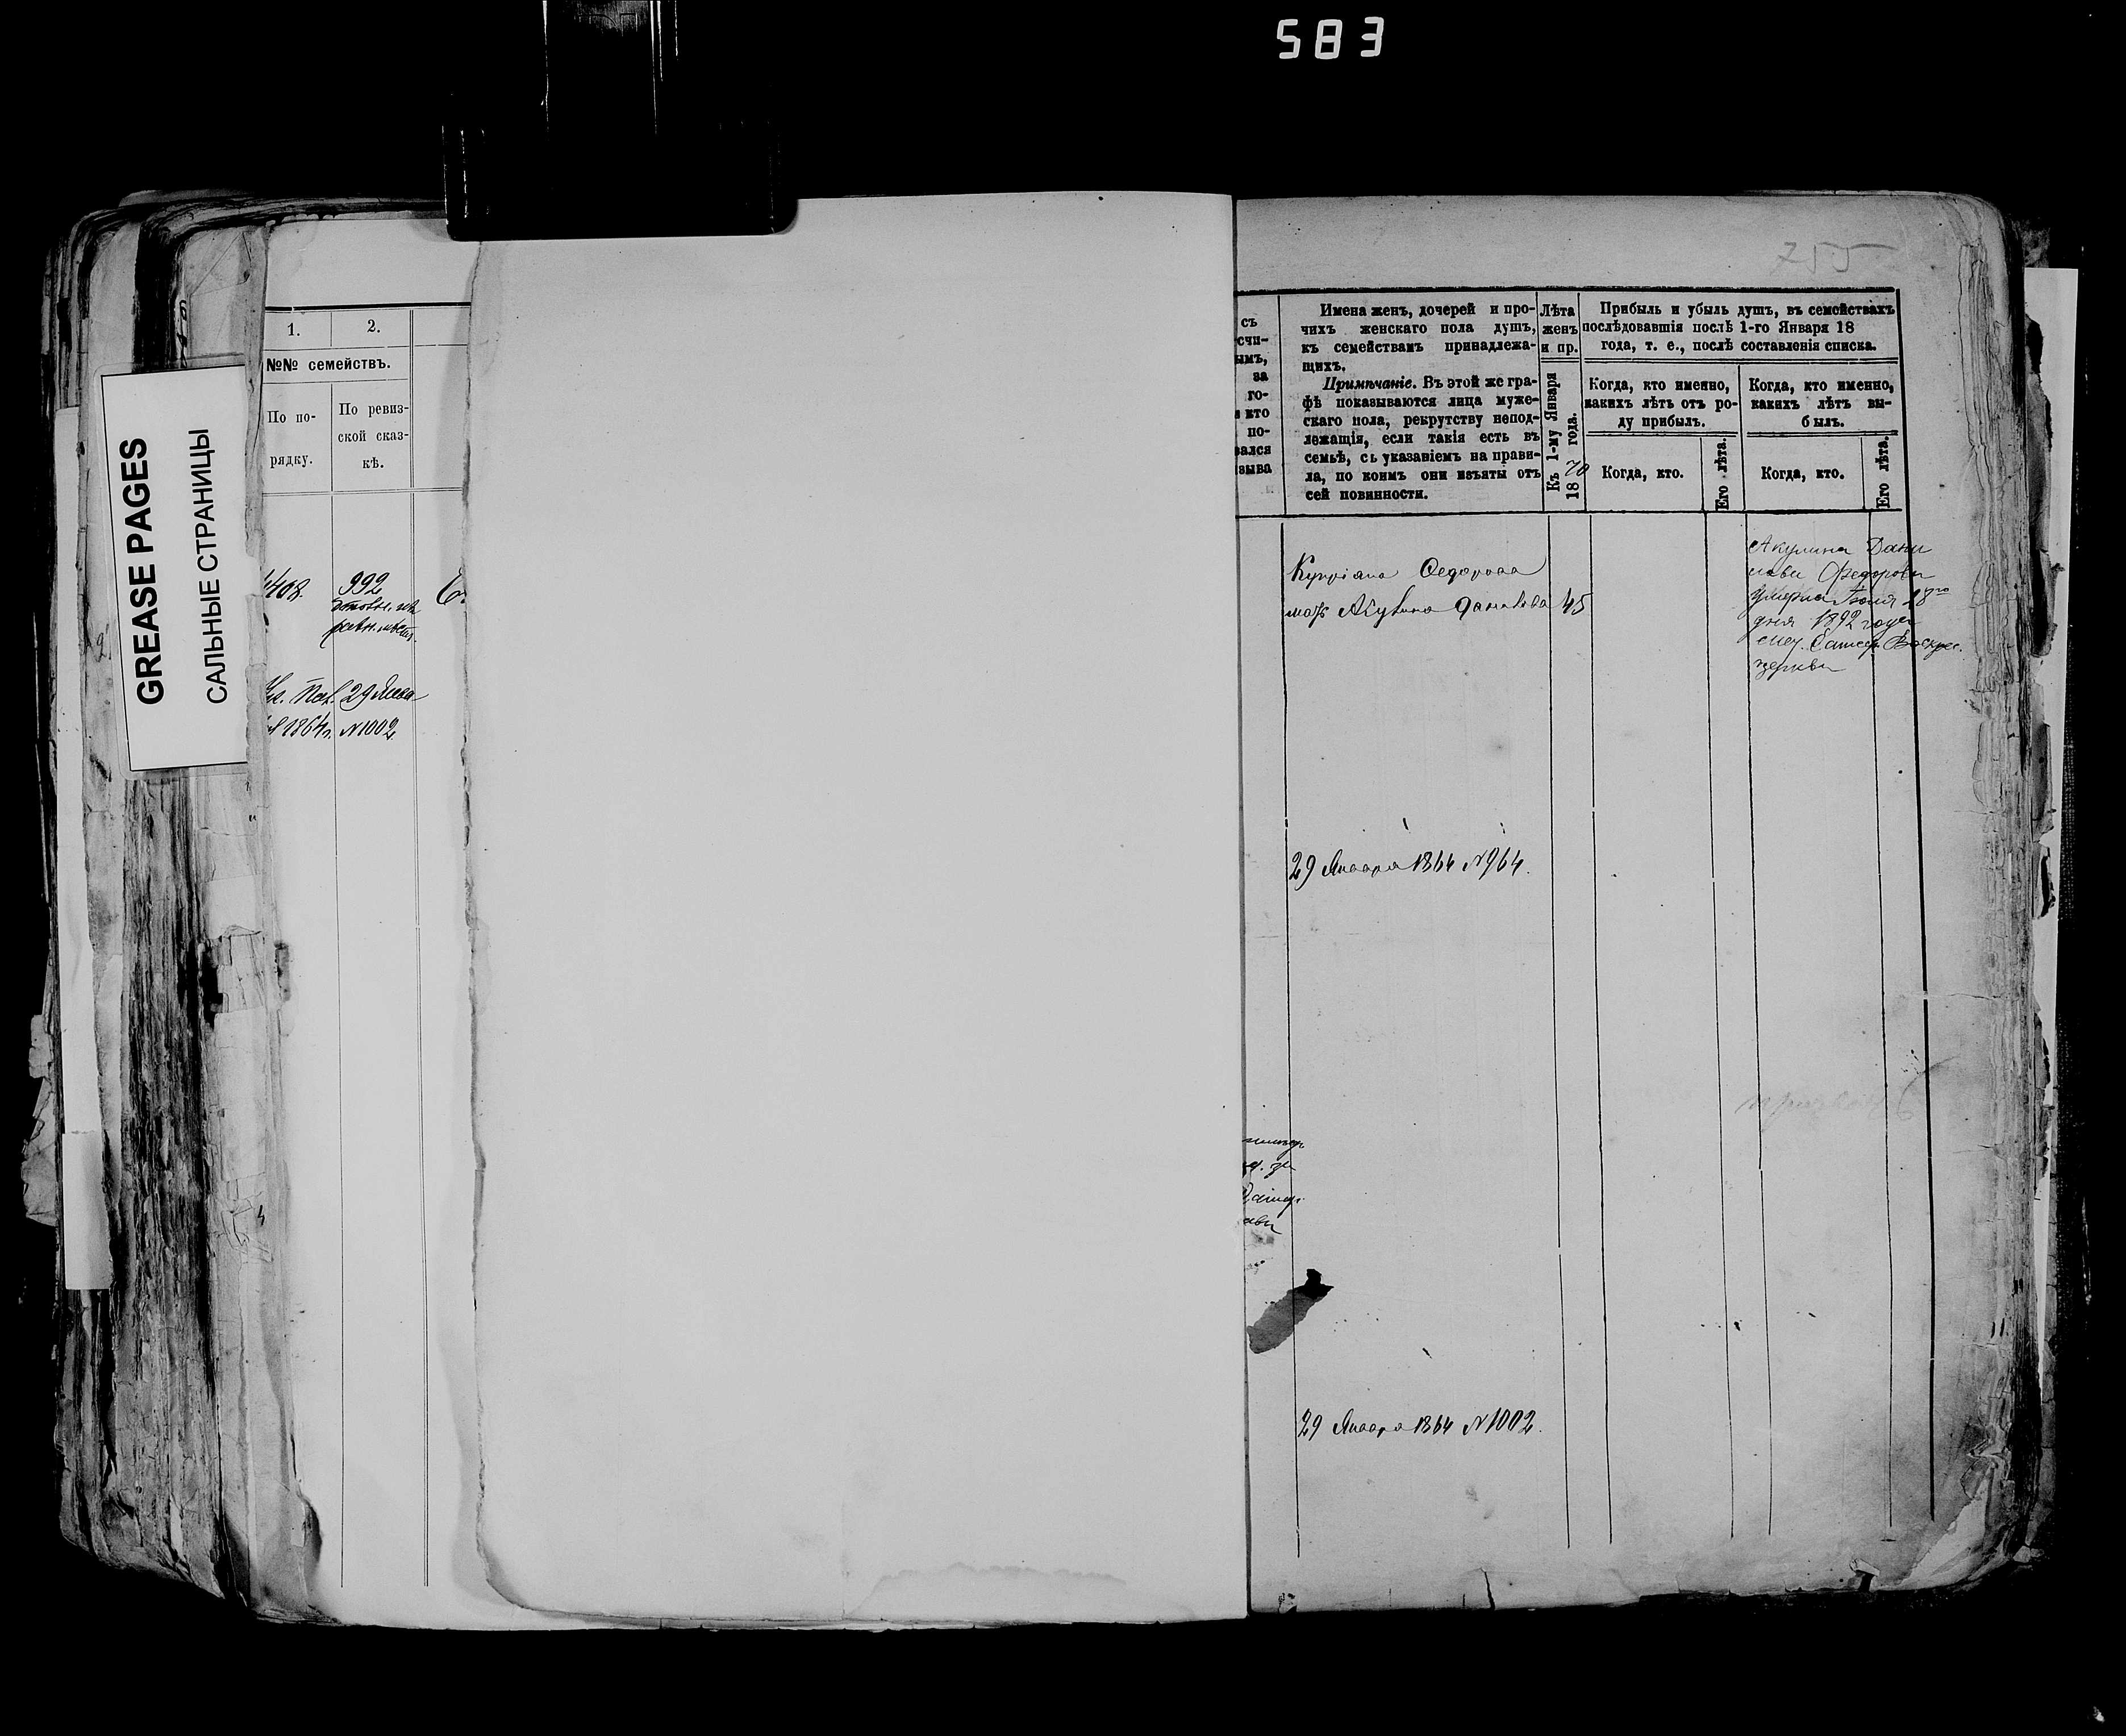 583
GREASE PAGES
САЛЬНЫЕ СТРАНИЦЫ
1.
2.
№№ семействъ.
По по-
рядку.
По ревиз-
ской сказ-
кѣ.
408.
992
29 Янва
1864 г. №1002
755
съ
счи-
ымъ,
за
го-
и кто
по-
вался
зыва
Имена женъ, дочерей и про-
чихъ женскаго пола душъ,
къ семействамъ принадлежа-
щихъ.
Примѣчаніе. Въ этой же гра-
фѣ показываются лица муже-
скаго пола, рекрутству непод-
лежащія, если такія есть въ
семьѣ, съ указаніемъ на прави-
ла, по коимъ они изъяты отъ
сей повинности.
Лѣта
женъ
и пр.
Къ 1-му Января
1870 года.
Прибыль и убыль душъ, въ семействахъ
послѣдовавшія послѣ 1-го Января 18
года, т. е., послѣ составленія списка.
Когда, кто именно,
какихъ лѣтъ отъ ро-
ду прибылъ.
Когда, кто именно,
какихъ лѣтъ вы-
былъ.
Когда, кто.
Его лѣта.
Когда, кто.
Его лѣта.
Купріяна Федорова
мать Акулина Данилова 45
Акулина Дани
лова Федорова
умерла Іюля 18го
дня 1892 года
Воскрес.
церкви
29 Января 1864 №964.
29 Января 1864 №1002.